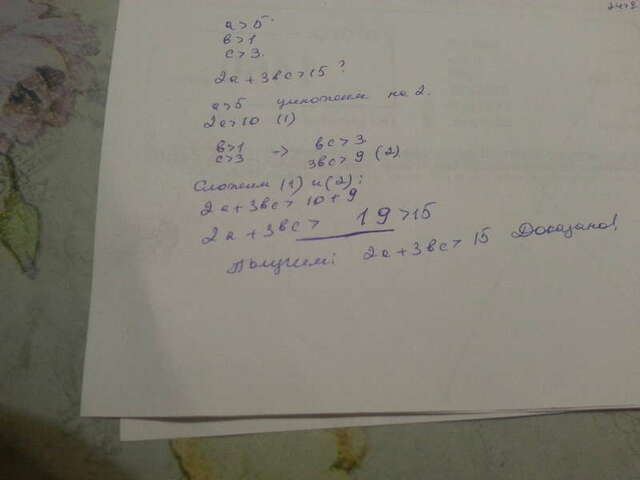 a>5
в>1
c>3.
2a+3вc>15?
a>5 умножаем на 2.
2a>10 (1)
в>1
c>3 → вc>3
3вc>9 (2)
Сложим (1) и (2):
2a+3вc>10+9
2a+3вc> 19>15
Получаем: 2a+3вc>15 Доказано!